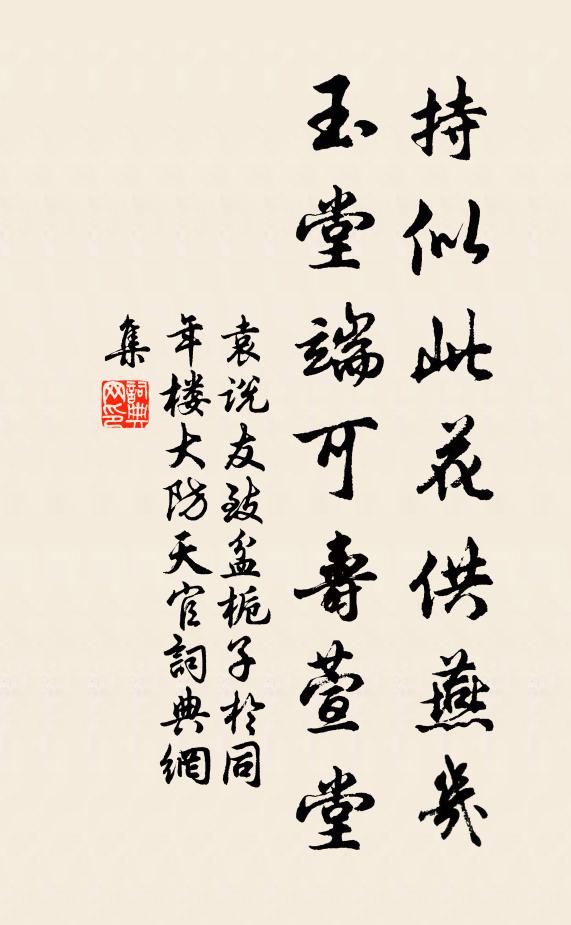 持似此花供燕几
玉堂端可寿萱堂
袁说友致盆栀子于同
年楼大防天官詞典網
集
詞典网印